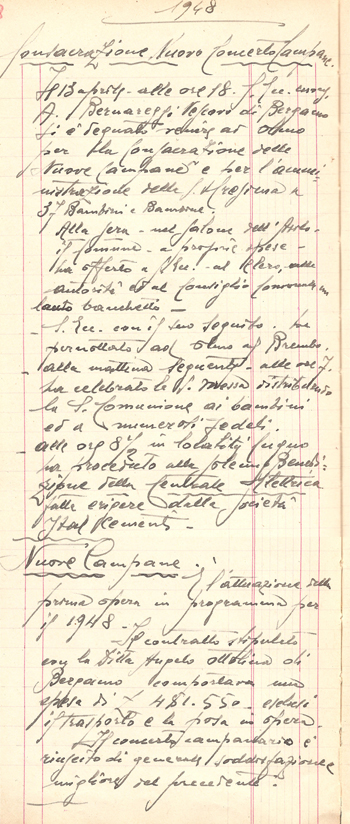 1948
Consacrazione Nuovo Concerto Campane.
Il 13 aprile - alle ore 18. S. Ecc. mons.
A. Bernareggi Vescovo di Bergamo
si è degnato venire ad Olmo
per la Consacrazione delle
Nuove Campane e per l'ammi-
nistrazione della S. Cresima a
37 Bambini e Bambine.
Alla sera - nel salone dell'Asilo -
il Comune - a proprie spese -
ha offerto a S. Ecc. - al Clero, alle
autorità ed al Consiglio Comunale un
lauto banchetto -
S. Ecc. con il suo seguito. ha
pernottato ad Olmo al Brembo.
alla mattina seguente - alle ore 7.
ha celebrato la S. Messa distribuendo
la S. Comunione ai bambini
ed a numerosi fedeli.
alle ore 8½ in località Cugno
ha proceduto alla solenne Benedi-
zione della Centrale Elettrica
fatta erigere dalla società
Ital Cementi -
Nuove Campane.
È l'attuazione della
prima opera in programma per
il 1948 -
Il contratto stipulato
con la Ditta Angelo Ottolina di
Bergamo comportava una
spesa di £ 481.550 - esclusi
il trasporto e la posa in opera.
Il concerto campanario è
riuscito di generale soddisfazione
migliore del precedente.